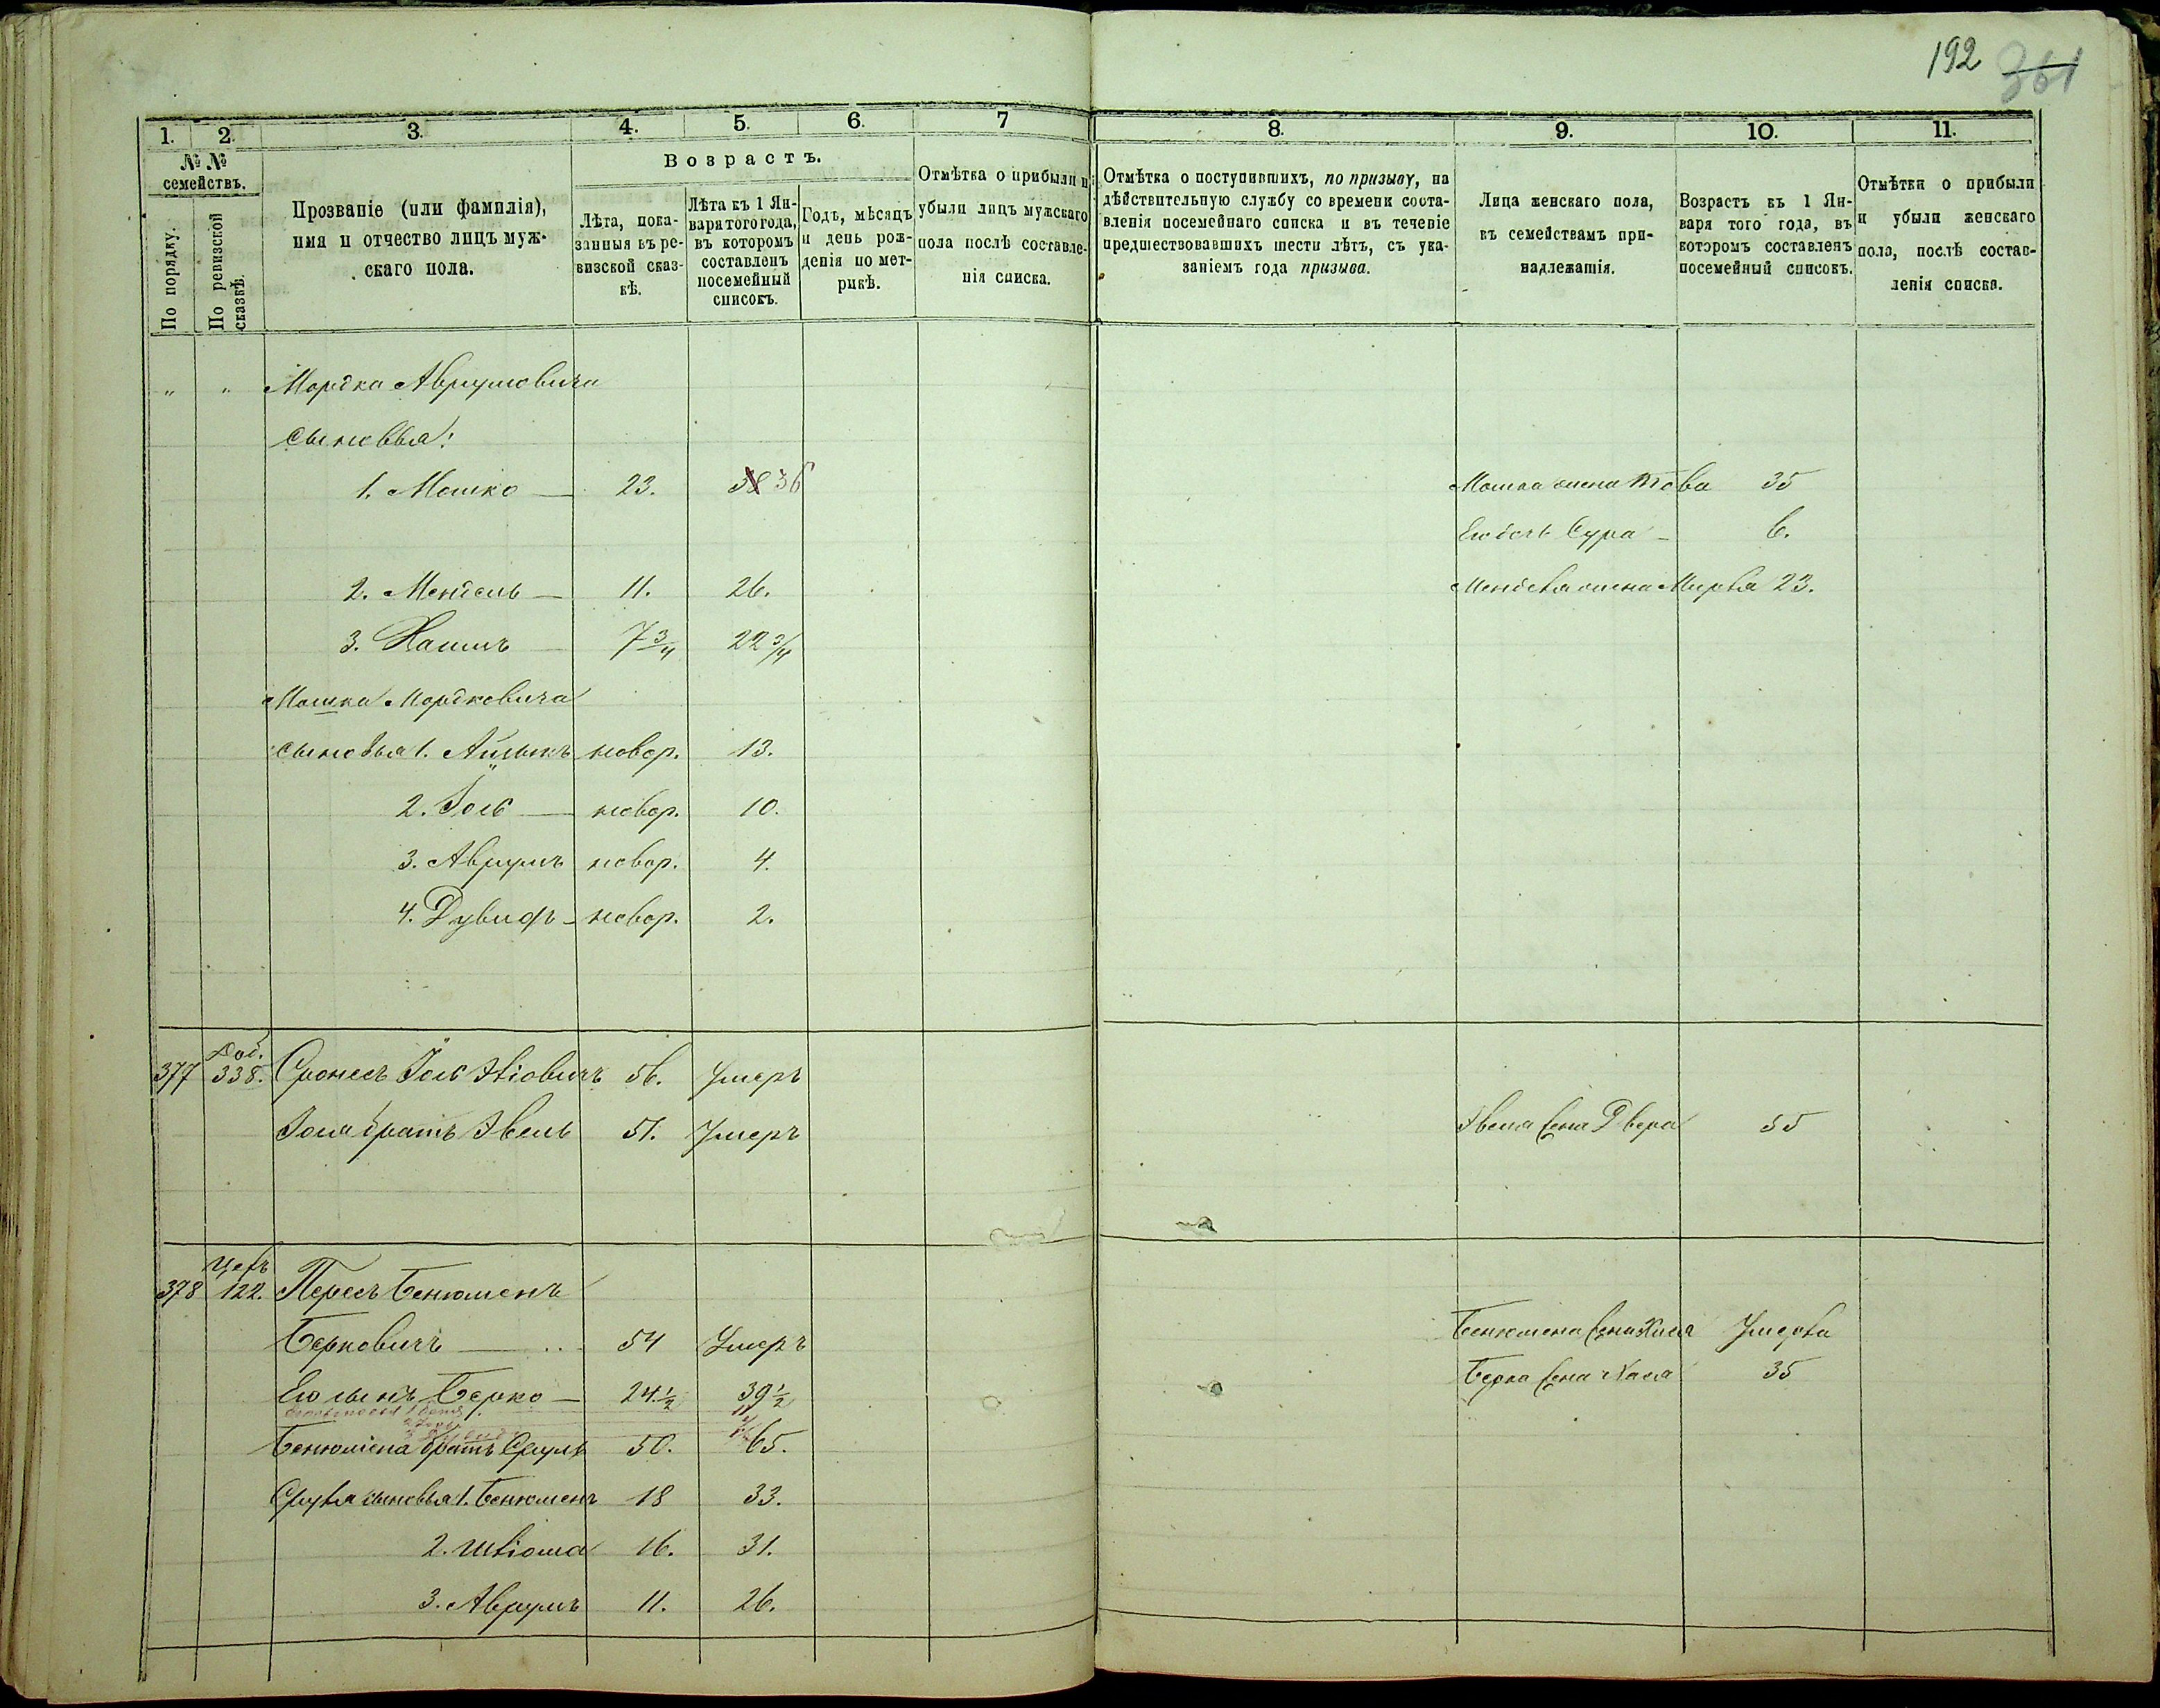 192 361
1. 2. 3. 4. 5. 6. 7 8. 9. 10. 11.
№ № семействъ.
По порядку.
По ревизской сказкѣ.
Прозваніе (или фамилія),
имя и отчество лицъ муж-
скаго пола.
Возрастъ.
Лѣта, пока-
занныя въ ре-
визской сказ-
кѣ.
Лѣта къ 1 Ян-
варя того года,
въ которомъ
составленъ
посемейный
списокъ.
Годъ, мѣсяцъ
и день рож-
денія по мет-
рикѣ.
Отмѣтка о прибыли и
убыли лицъ мужскаго
пола послѣ составле-
нія списка.
Отмѣтка о поступившихъ, по призыву, на
дѣйствительную службу со времени соста-
вленія посемейнаго списка и въ теченіе
предшествовавшихъ шести лѣтъ, съ ука-
заніемъ года призыва.
Лица женскаго пола,
въ семействамъ при-
надлежащія.
Возрастъ къ 1 Ян-
варя того года, въ
которомъ составленъ
посемейный списокъ.
Отмѣтки о прибыли
и убыли женскаго
пола, послѣ состав-
ленія списка.
" " Мордка Аврумовича
сыновья:
1. Мошко 23. 38 36 Мошка жена Това 35
Ею дочь Сура 6.
2. Мендель 11. 26. Менделя жена Мирля 23.
3. Хаимъ 7 3/4 22 3/4
Мошка Мордковича
сыновья 1. Айзикъ новор. 13.
2. Іось новор. 10.
3. Аврумъ новор. 4.
4. Дувидъ новор. 2.
377 Доб. 338. Сронесъ Іось Лейбовичъ 56. Умеръ
Іося братъ Звель 51. Умеръ Звеля жена Двера 55
378 Цехъ 122. Пересъ Бенюменъ
Берковичъ 54 Умеръ Бенюмена жена Хая Умерла
Ею сынъ Берко 24 1/2 39 1/2 Берка жена Хана 35
Бенюмена братъ Сруль 50. 65.
Сруля сыновья 1. Бенюменъ 18 33.
2. Шліома 16. 31.
3. Аврумъ 11. 26.